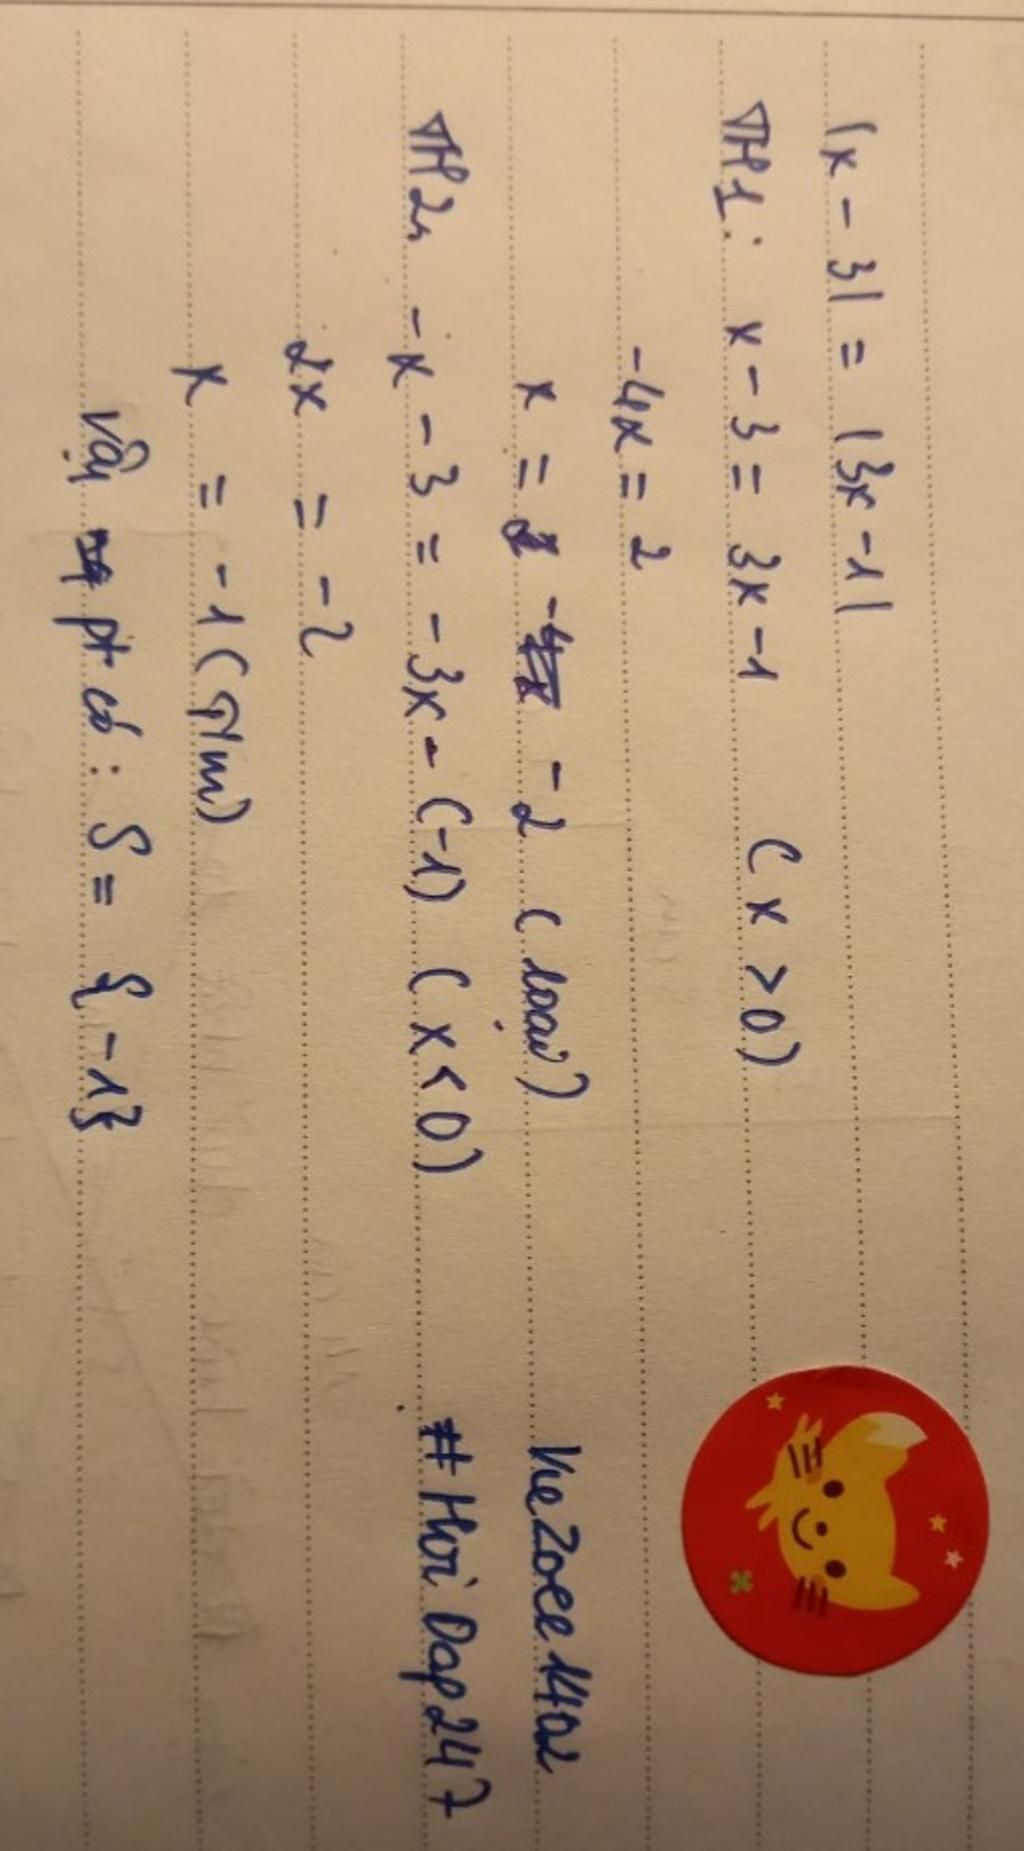 |x - 3| = |3x - 1|
TH1: x - 3 = 3x - 1 ( x > 0 )
-4x = 2
x = - 2 ( loại )
TH2: -x - 3 = -3x - (-1) ( x < 0 )
2x = -2
x = -1 (TM)
Vậy pt có : S = { -1}
VieZoee1402
# Hoi Dap 247